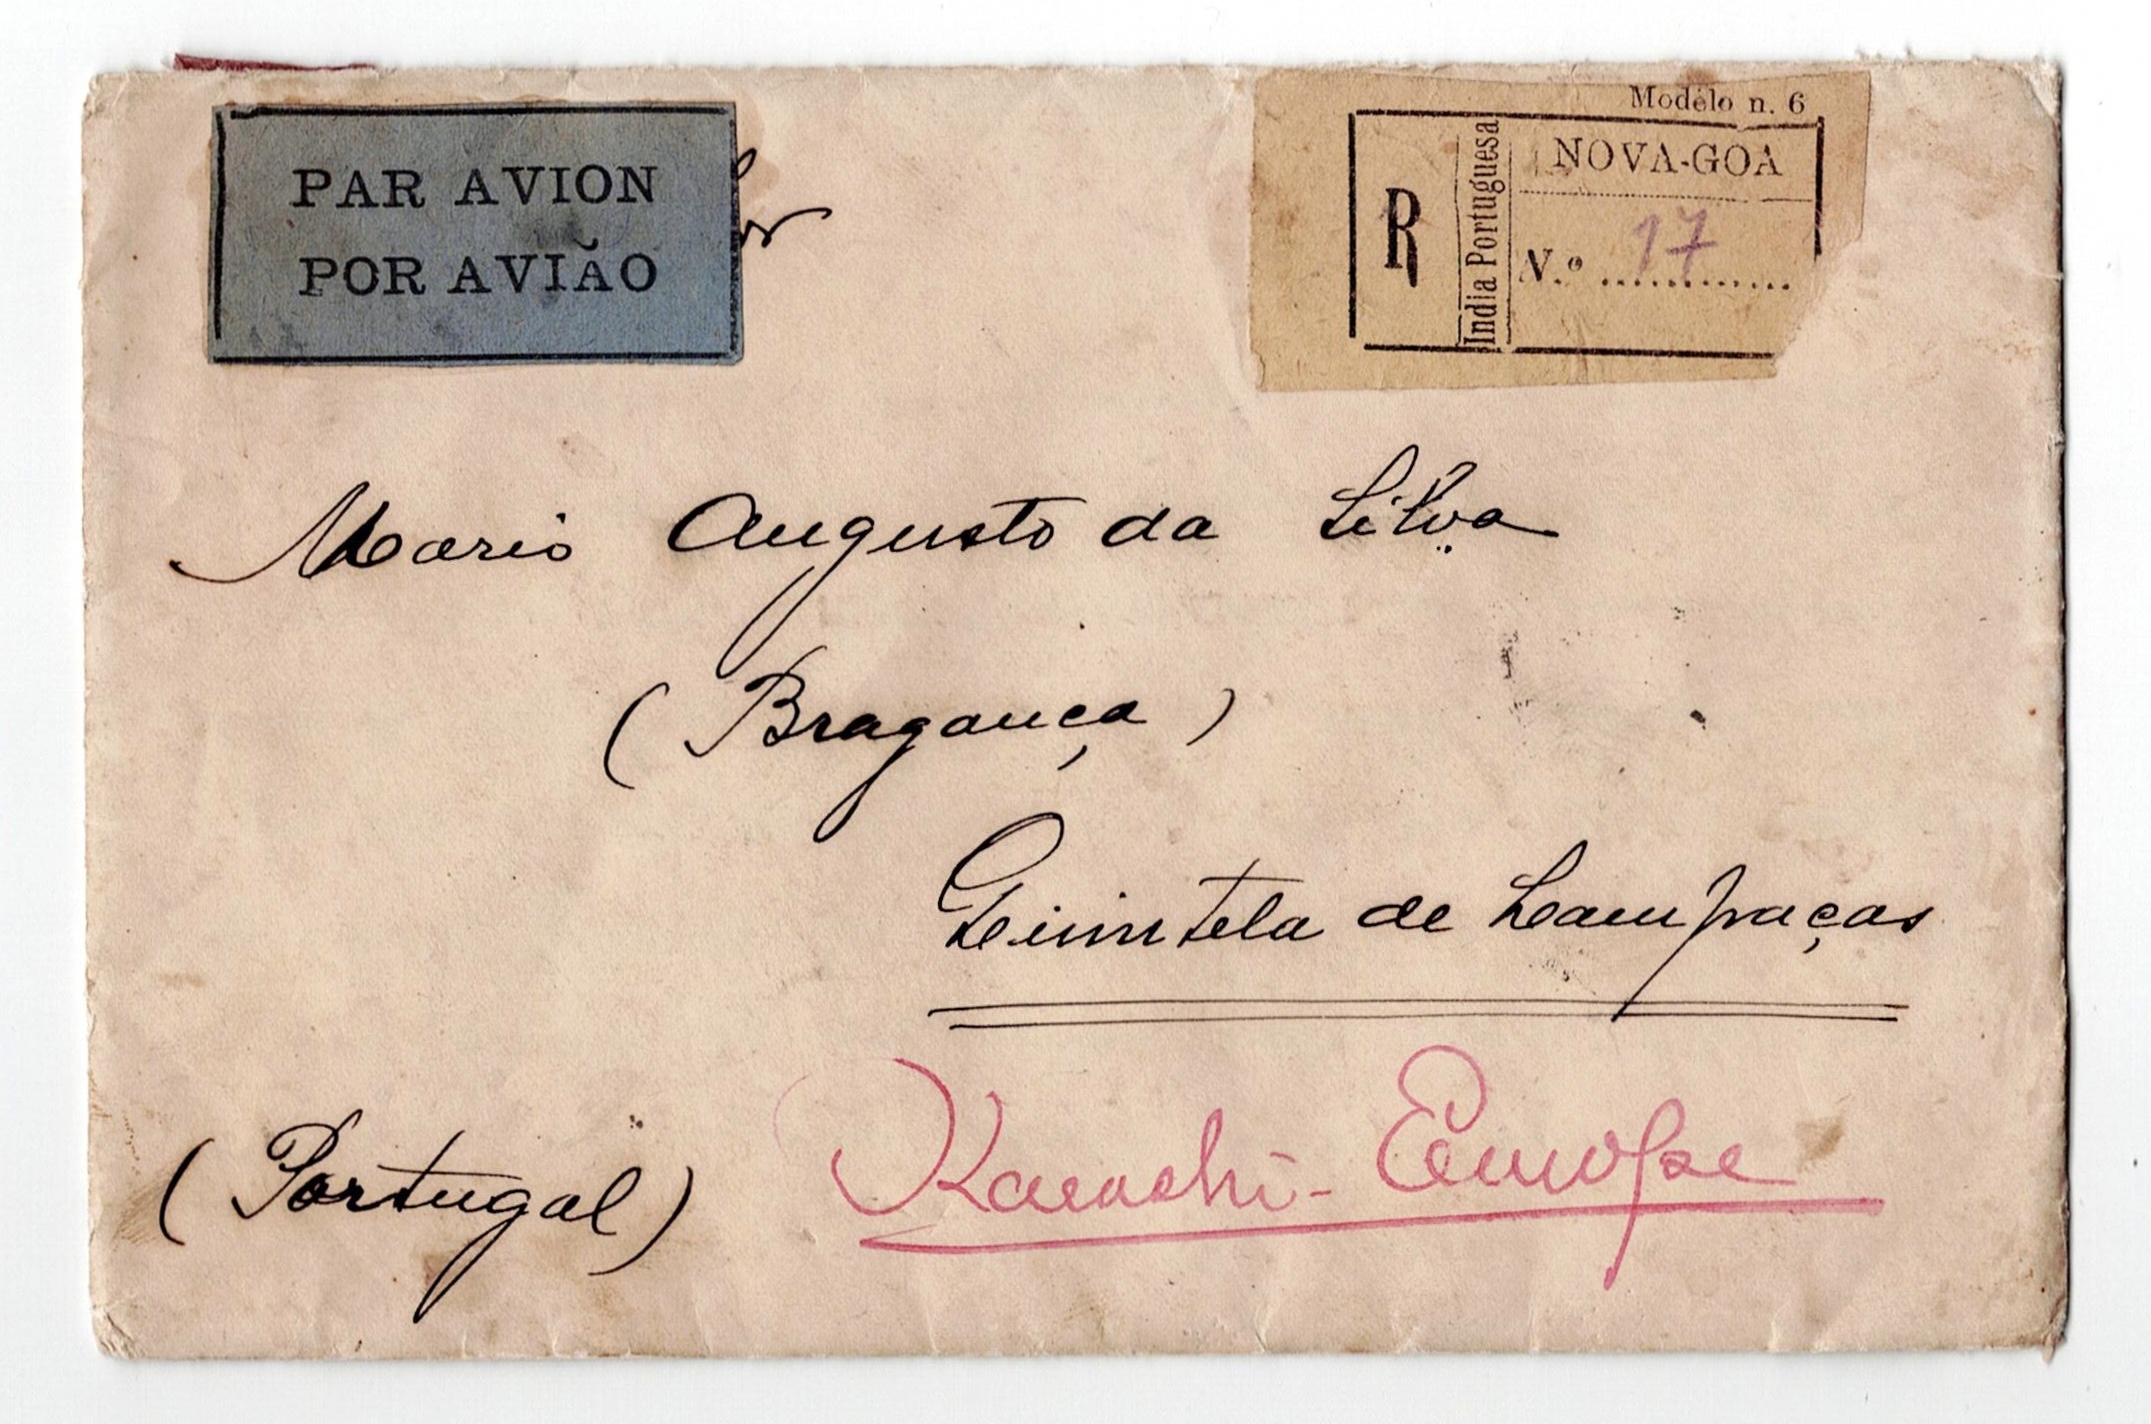 PAR AVION
POR AVIÃO
Modélo n. 6
R
India Portuguesa
NOVA-GOA
N.º 17
Mario Augusto da Silva
(Bragança)
Quintela de Lampaças
(Portugal)
Karachi-Europe